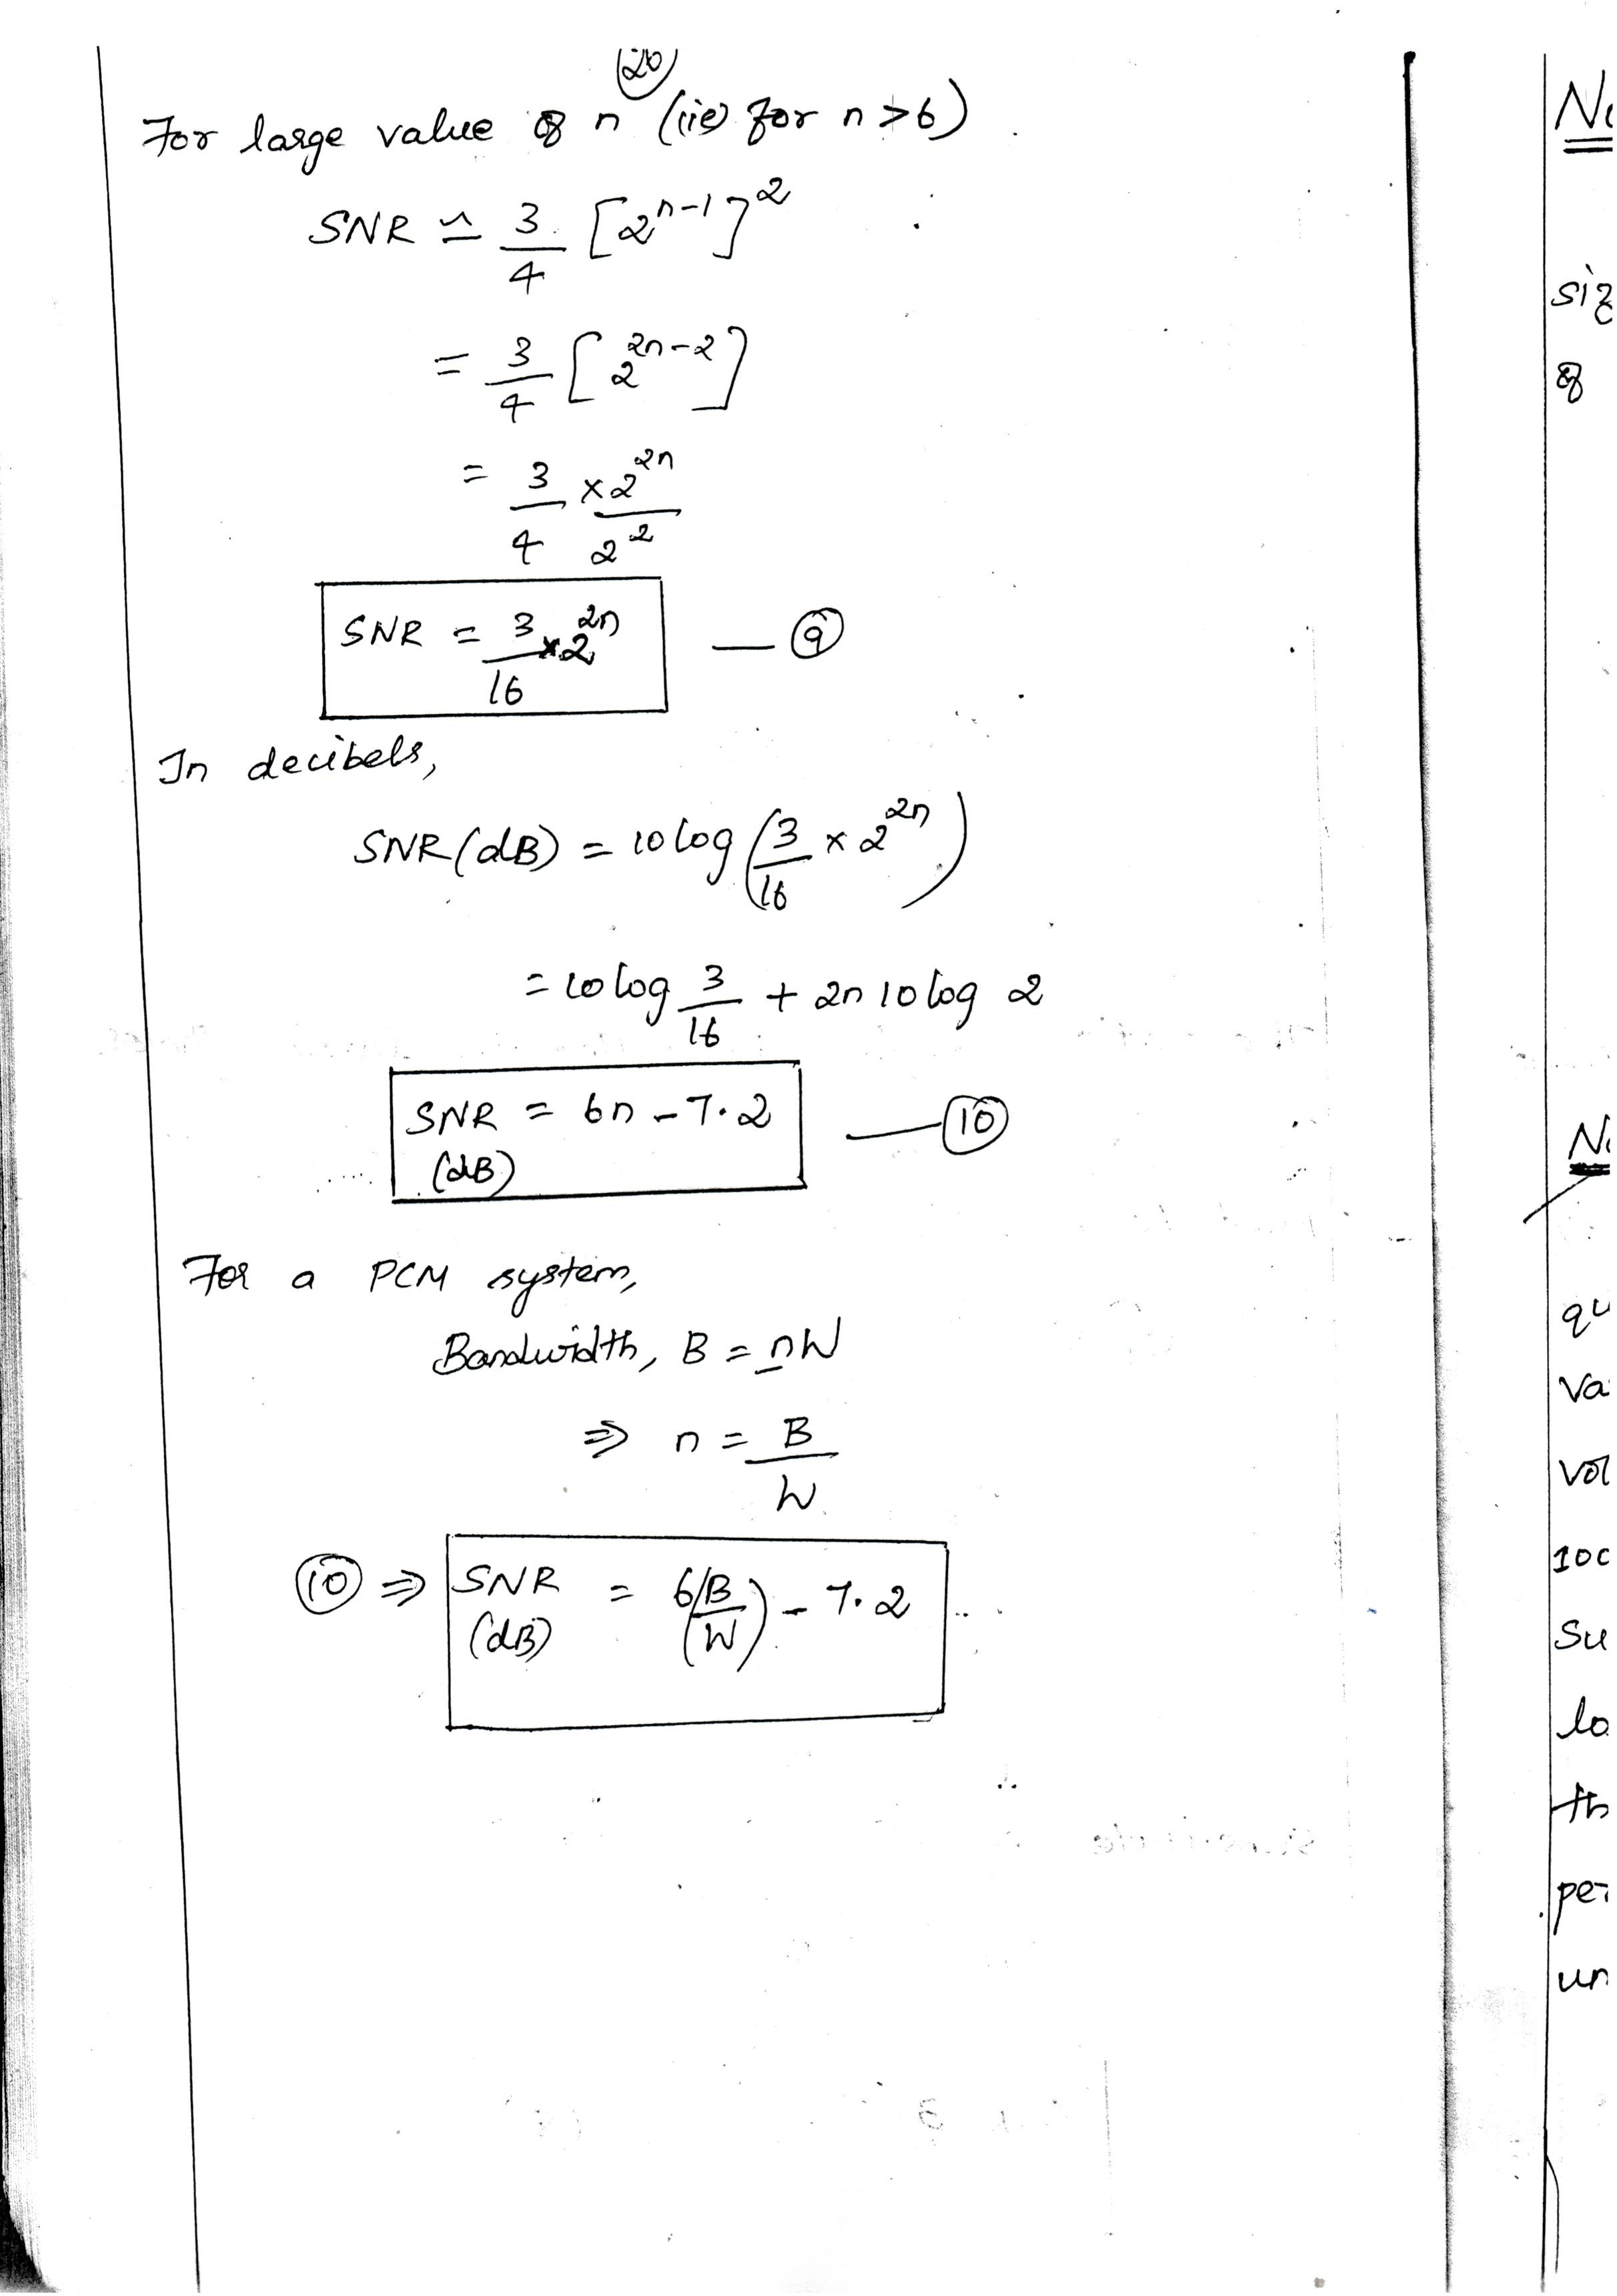 (20)
For large value of n (ie) for n > 6)
SNR ≃ 3/4 [2^(n-1)]^2
= 3/4 [2^(2n-2)]
= 3/4 × 2^(2n)/2^2
SNR = 3/16 × 2^(2n) — (9)
In decibels,
SNR(dB) = 10 log (3/16 × 2^(2n))
= 10 log 3/16 + 2n 10 log 2
SNR (dB) = 6n - 7.2 — (10)
For a PCM system,
Bandwidth, B = nW
⇒ n = B/W
(10) ⇒ SNR (dB) = 6(B/W) - 7.2
siz
of
qu
va
vol
100
su
lo
th
per
un